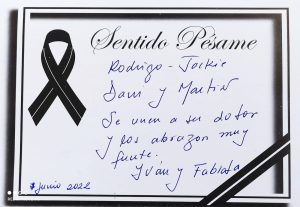 Sentido Pésame
Rodrigo - Jackie
Dani y Martín
Se unen a su dolor
y los abrazan muy
fuerte.
Iván y Fabiola
7 Junio 2022